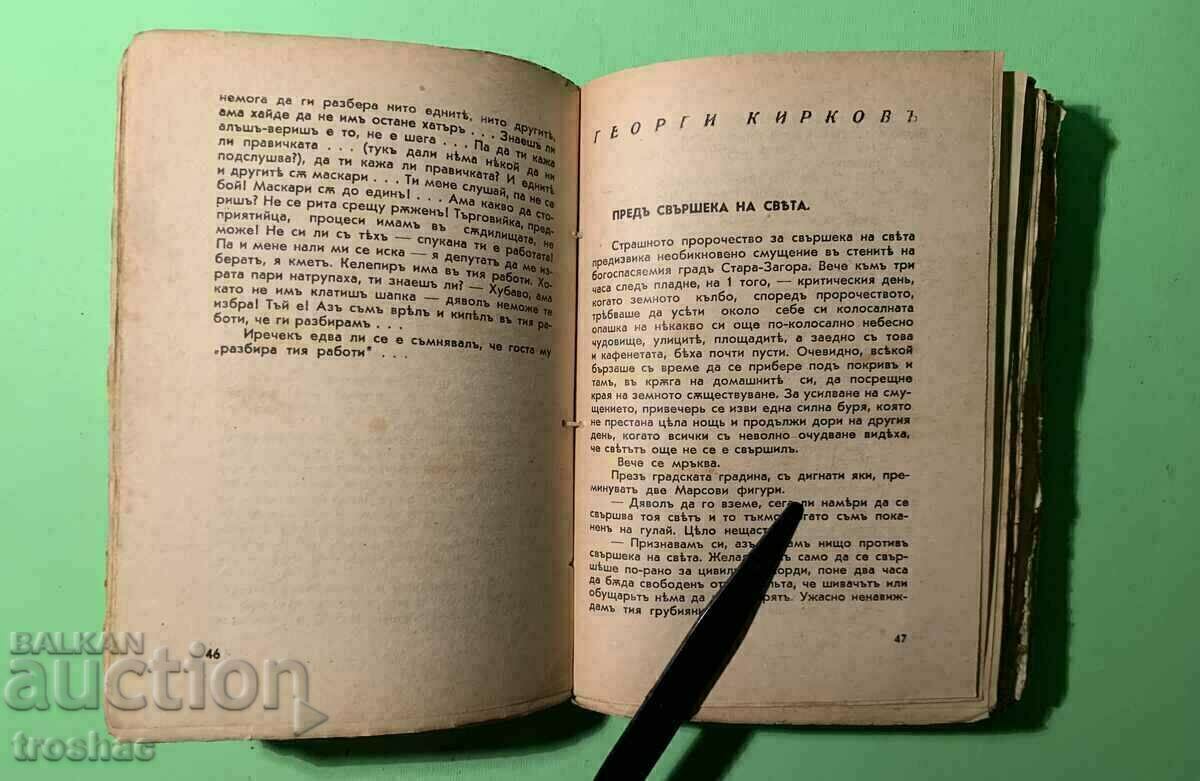 немога да ги разбера нито еднитѣ, нито другитѣ,
ама хайде да не имъ остане хатъръ . . . Знаешъ ли
алъшъ-веришъ е то, не е шега . . . Па да ти кажа
ли правичката . . . (тукъ дали нѣма нѣкой да ни
подслушва?), да ти кажа ли правичката? И еднитѣ
и другитѣ сѫ маскари . . . Ти мене слушай, па не се
бой! Маскари сѫ до единъ! . . . Ама какво да сто-
ришъ? Не се рита срещу рѫженъ! Търговийка, пред-
приятийца, процеси имамъ въ сѫдилищата, не
може! Не си ли съ тѣхъ — спукана ти е работата!
Па и мене нали ми се иска — я депутатъ да ме из-
бератъ, я кметъ. Келепиръ има въ тия работи. Хо-
рата пари натрупаха, ти знаешъ ли? — Хубаво, ама
като не имъ клатишъ шапка — дяволъ неможе те
избра! Тъй е! Азъ съмъ врѣлъ и кипѣлъ въ тия ра-
боти, че ги разбирамъ . . .
Иречекъ едва ли се е съмнявалъ, че госта му
„разбира тия работи“ . . .
46
ГЕОРГИ КИРКОВЪ
ПРЕДЪ СВЪРШЕКА НА СВѢТА.
Страшното пророчество за свършека на свѣта
предизвика необикновено смущение въ стенитѣ на
богоспасяемия градъ Стара-Загора. Вече къмъ три
часа следъ пладне, на 1 того, — критическия день,
когато земното кълбо, споредъ пророчеството,
трѣбваше да усѣти около себе си колосалната
опашка на нѣкакво си още по-колосално небесно
чудовище, улицитѣ, площадитѣ, а заедно съ това
и кафенетата, бѣха почти пусти. Очевидно, всѣкой
бързаше съ време да се прибере подъ покривъ и
тамъ, въ крѫга на домашнитѣ си, да посрещне
края на земното сѫществуване. За усилване на сму-
щението, привечерь се изви една силна буря, която
не престана цѣла нощь и продължи дори на другия
день, когато всички съ неволно очудване видѣха,
че свѣтътъ още не се е свършилъ.
Вече се мръква.
Презъ градската градина, съ дигнати яки, пре-
минуватъ две Марсови фигури.
— Дяволъ да го вземе, сега ли намѣри да се
свършва тоя свѣтъ и то тъкмо когато съмъ пока-
ненъ на гулай. Цѣло нещас
— Признавамъ си, азъ нищо противъ
свършека на свѣта. само да се свър-
шѣше по-рано за поне два часа
да бѫда свободенъ от че шивачътъ или
обущарьтъ нѣма да Ужасно ненавиж-
дамъ тия грубиян
47
BALKAN
auction
troshac